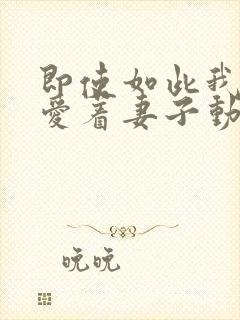 即使如此我
愛着妻子動
晚晚